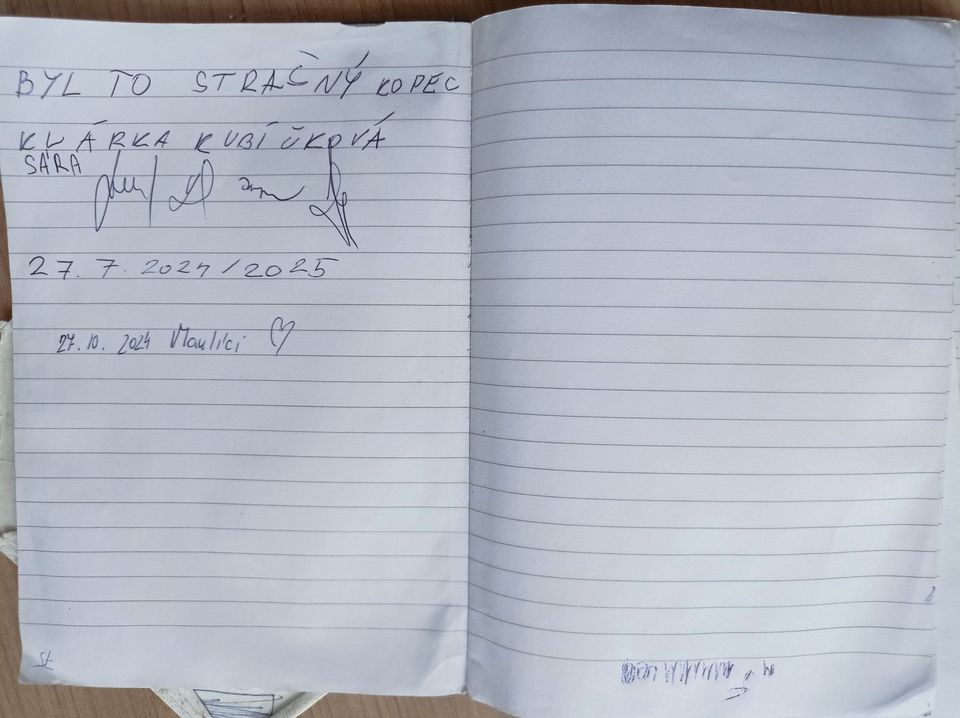 BYL TO STRAČNÝ KOPEC
KLÁRKA KUBÍČKOVÁ
SÁRA
27. 7. 2024/2025
27. 10. 2024